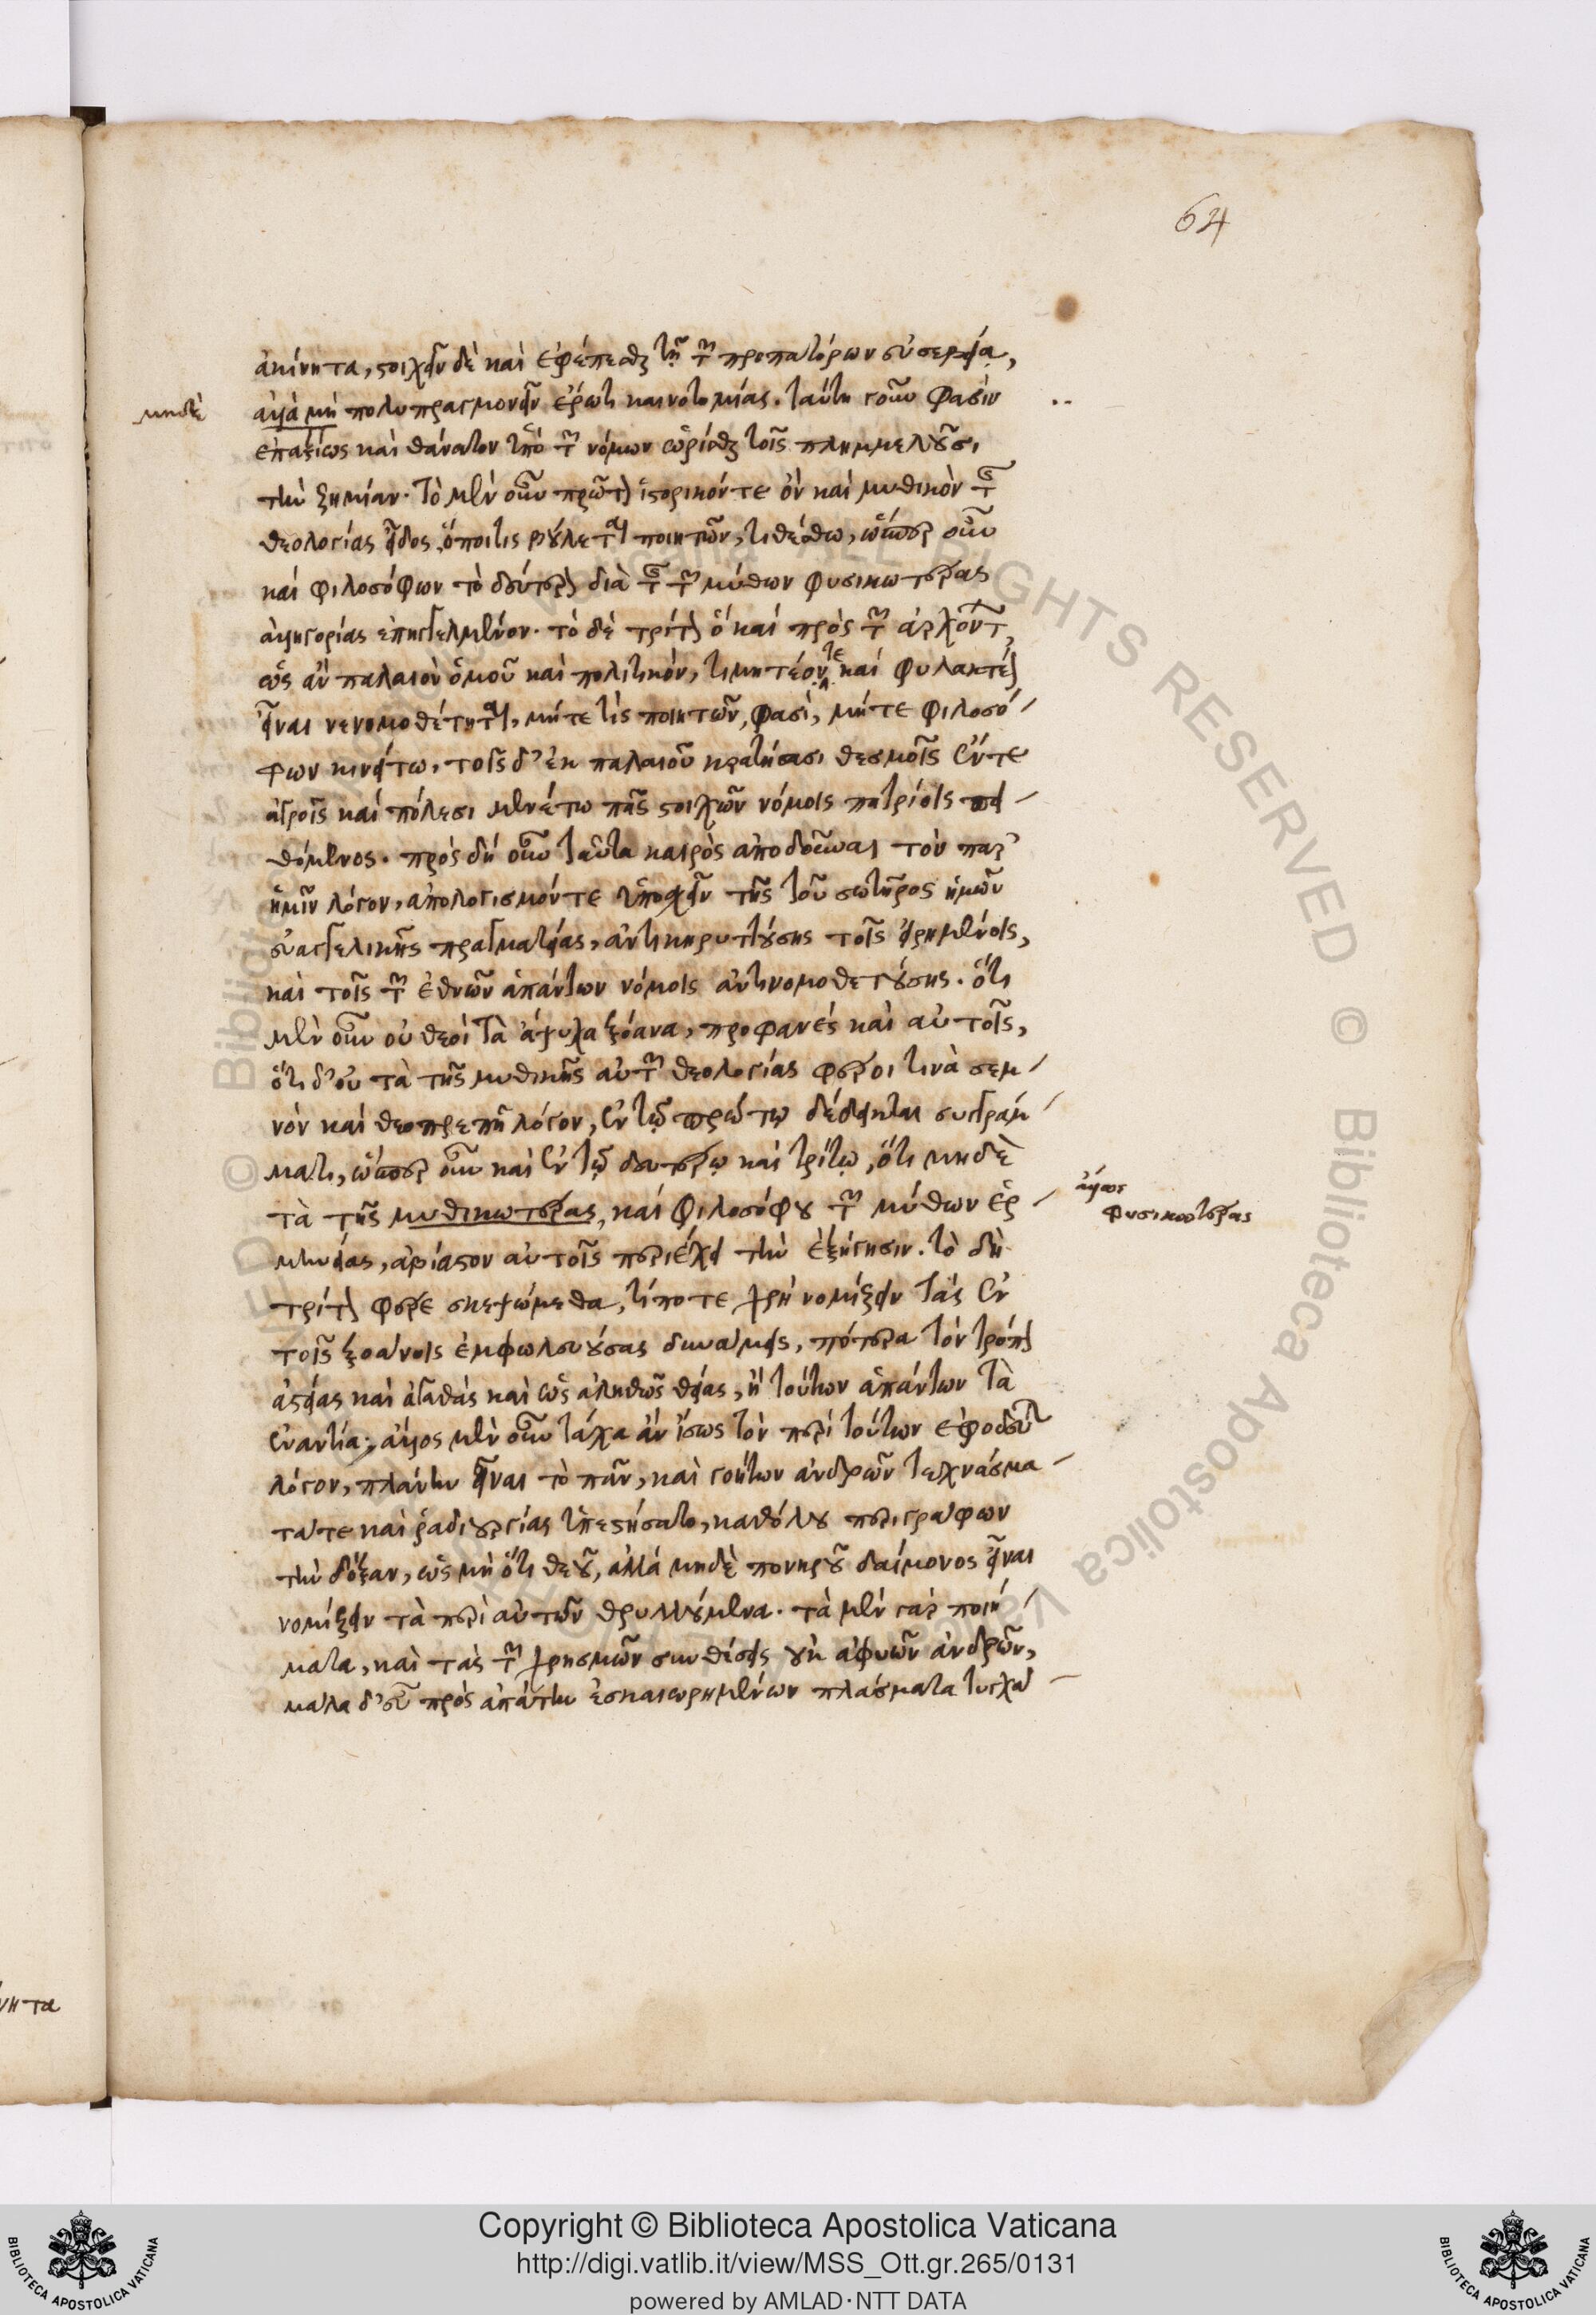 64
ἀκίνητα, στοιχεῖν δὲ καὶ ἐφέπεσθαι τῇ τῶν προπατόρων εὐσεβείᾳ,
μηδὲ
ἀλλὰ μὴ πολυπραγμονεῖν ἔρωτι καινοτομίας. ταύτη γοῦν φασὶν
ἐπαξίως καὶ θάνατον ὑπὸ τῶν νόμων ὡρίσθαι τοῖς πλημμελοῦσι
τὴν ζημίαν. τὸ μὲν οὖν πρῶτον ἱστορικόν τε ὂν καὶ μυθικὸν τῆς
θεολογίας εἶδος, ὅποι τις βούλεται ποιητῶν, τιθέσθω, ὥσπερ οὖν
καὶ φιλοσόφων τὸ δεύτερον διὰ τῆς τῶν μύθων φυσικωτέρας
ἀλληγορίας ἐπηγγελμένον. τὸ δὲ τρίτον ὃ καὶ πρὸς τῶν ἀρχόντων,
ὡς ἂν παλαιὸν ὁμοῦ καὶ πολιτικόν, τιμητέον τε καὶ φυλακτέον
εἶναι νενομοθέτηται, μήτε τὶς ποιητῶν, φασὶ, μήτε φιλοσό-
φων κινείτω, τοῖς δ' ἐκ παλαιοῦ κρατήσασι θεσμοῖς ἔν τε
ἀγροῖς καὶ πόλεσι μενέτω πᾶς στοιχῶν νόμοις πατρίοις πει-
θόμενος. πρὸς δὴ οὖν ταῦτα καιρὸς ἀποδοῦναι τὸν παρ'
ἡμῖν λόγον, ἀπολογισμόν τε ὑποσχεῖν τῆς τοῦ σωτῆρος ἡμῶν
εὐαγγελικῆς πραγματείας, ἀντικηρυττούσης τοῖς εἰρημένοις,
καὶ τοῖς τῶν ἐθνῶν ἁπάντων νόμοις ἀντινομοθετούσης. ὅτι
μὲν οὖν οὐ θεοὶ τὰ ἄψυχα ξόανα, προφανὲς καὶ αὐτοῖς,
ὅτι δ' οὐ τὰ τῆς μυθικῆς αὐτῶν θεολογίας φέροι τινὰ σεμ-
νὸν καὶ θεοπρεπῆ λόγον, ἐν τῷ πρώτῳ δέδεικται συγγράμ-
ματι, ὥσπερ οὖν καὶ ἐν τῷ δευτέρῳ καὶ τρίτῳ, ὅτι μηδὲ
τὰ τῆς μυθικωτέρας, καὶ φιλοσόφου τῶν μύθων ἑρ-
ἄλλως
φυσικωτέρας
μηνείας, ἀβίαστον αὐτοῖς περιέχει τὴν ἐξήγησιν. τὸ δὴ
τρίτον φέρε σκεψώμεθα, τί ποτε χρὴ νομίζειν τὰς ἐν
τοῖς ξοάνοις ἐμφωλευούσας δυνάμεις, πότερα τὸν τρόπον
ἀστείας καὶ ἀγαθὰς καὶ ὡς ἀληθῶς θείας, ἢ τούτων ἁπάντων τὰ
ἐναντία; ἄλλος μὲν οὖν τάχα ἂν ἴσως τὸν περὶ τούτων ἐφοδεύων
λόγον, πλάνην εἶναι τὸ πᾶν, καὶ γοήτων ἀνδρῶν τεχνάσμα-
τά τε καὶ ῥᾳδιουργίας ὑπεστήσατο, καθόλου περιγράφων
τὴν δόξαν, ὡς μὴ ὅτι θεοῦ, ἀλλὰ μηδὲ πονηροῦ δαίμονος εἶναι
νομίζειν τὰ περὶ αὐτῶν θρυλλούμενα. τὰ μὲν γὰρ ποιή-
ματα, καὶ τὰς τῶν χρησμῶν συνθέσεις οὐκ ἀφυῶν ἀνδρῶν,
μάλα δ' εὖ πρὸς ἀπάτην ἐσκαιωρημένων πλάσματα τυγχά-
νητα
Copyright © Biblioteca Apostolica Vaticana
http://digi.vatlib.it/view/MSS_Ott.gr.265/0131
powered by AMLAD·NTT DATA
BIBLIOTECA APOSTOLICA VATICANA
BIBLIOTECA APOSTOLICA VATICANA